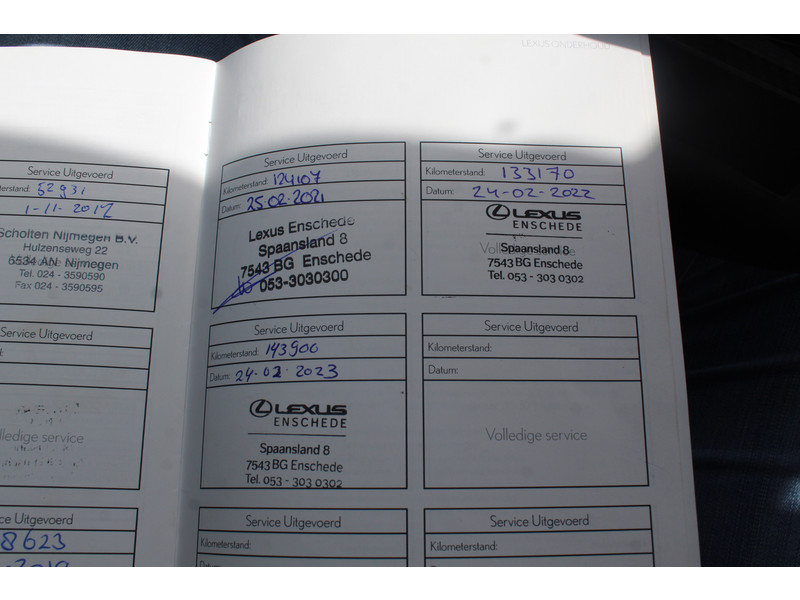 LEXUS ONDERHOUD
Service Uitgevoerd
52931
1-11-2017
Scholten Nijmegen B.V.
Hulzenseweg 22
6534 AN Nijmegen
Tel. 024 - 3590590
Fax 024 - 3590595
Service Uitgevoerd
service
Service Uitgevoerd
8623
Service Uitgevoerd
Kilometerstand: 124107
Datum: 25.02.2021
Lexus Enschede
Spaansland 8
7543 BG Enschede
053-3030300
Service Uitgevoerd
Kilometerstand: 133170
Datum: 24-02-2022
LEXUS
ENSCHEDE
Spaansland 8
7543 BG Enschede
Tel. 053 - 303 0302
Service Uitgevoerd
Kilometerstand: 143900
Datum: 24-02 2023
LEXUS
ENSCHEDE
Spaansland 8
7543 BG Enschede
Tel. 053 - 303 0302
Service Uitgevoerd
Kilometerstand:
Datum:
Volledige service
Service Uitgevoerd
Kilometerstand:
Service Uitgevoerd
Kilometerstand: